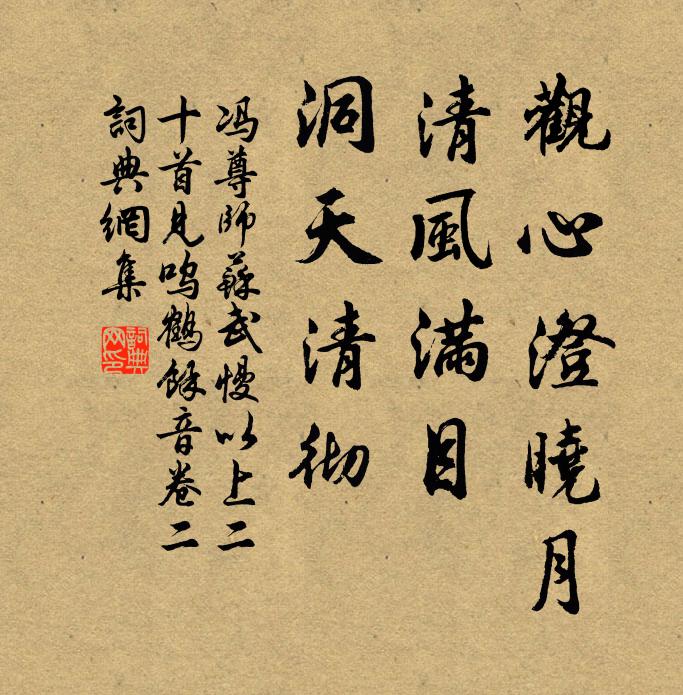 觀心澄曉月
清風滿目
洞天清彻
冯尊師蘇武慢以上二
十首見鸣鶴餘音卷二
詞典網集
詞典
网印